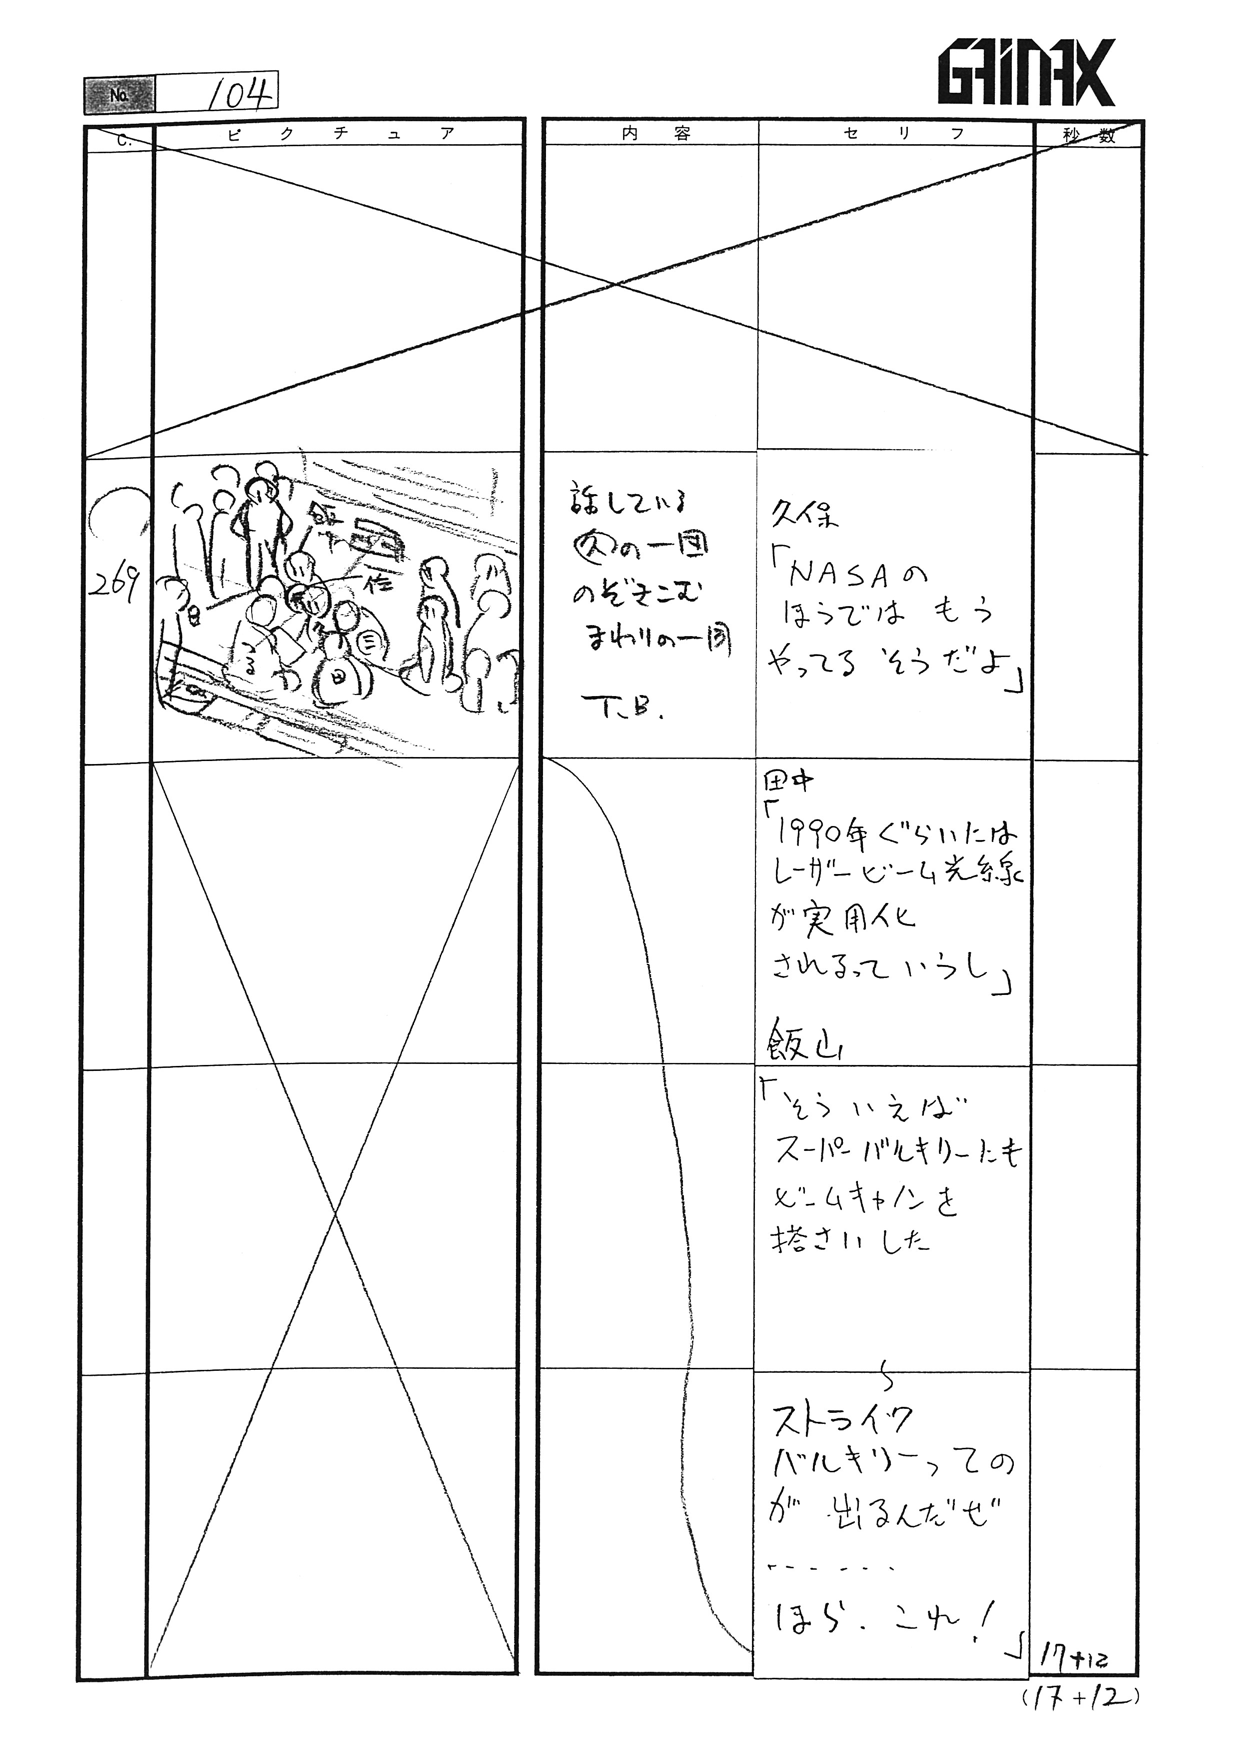 GAINAX
No. 104
C.
ピクチュア
内容
セリフ
秒数
269
田
中
佐
る
三
田
話している
久の一団
のぞきこむ
まわりの一同
T.B.
久保
「NASAの
ほうでは もう
やってる そうだよ」
田中
「1990年ぐらいには
レーザービーム光線
が実用化
されるって いうし」
飯山
「そう いえば
スーパーバルキリーにも
ビームキャノンを
搭さい した
ストライク
バルキリーっての
が 出るんだぜ
・・・・・・
ほら、これ!」
17+12
(17+12)